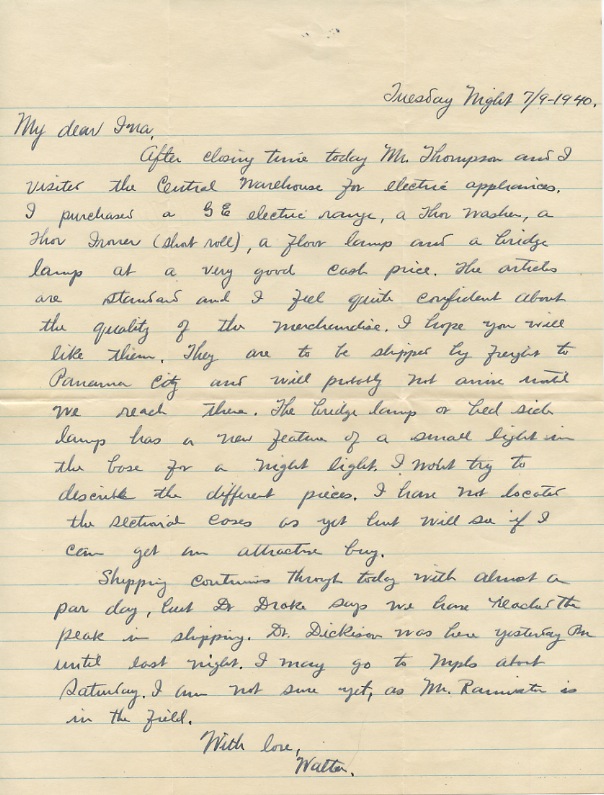 Tuesday Night 7/9-1940.
My dear Ina,
After closing time today Mr. Thompson and I
visited the Central Warehouse for electric appliances.
I purchased a GE electric range, a Thor Washer, a
Thor Ironer (short roll), a floor lamp and a bridge
lamp at a very good cash price. The articles
are standard and I feel quite confident about
the quality of the merchandise. I hope you will
like them. They are to be shipped by freight to
Panama City and will probably not arrive until
we reach there. The bridge lamp or bed side
lamp has a new feature of a small light in
the base for a night light. I wont try to
describe the different pieces. I have not located
the sectional cases as yet but will see if I
can get an attractive buy.
Shipping continues through today with almost a
par day, but Dr Drake says we have reached the
peak in shipping. Dr. Dickison was here yesterday Pm
until last night. I may go to Mpls about
Saturday. I am not sure yet, as Mr. is
in the field.
With love,
Walter.